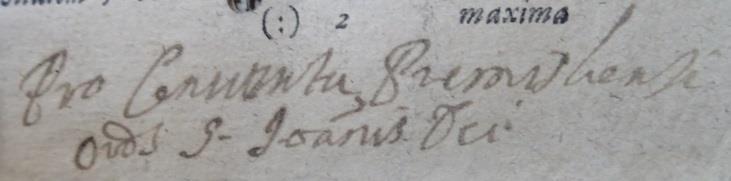 (:) 2 maxima
Pro Conventu Premisliensi
Ords S. Joānis Dei